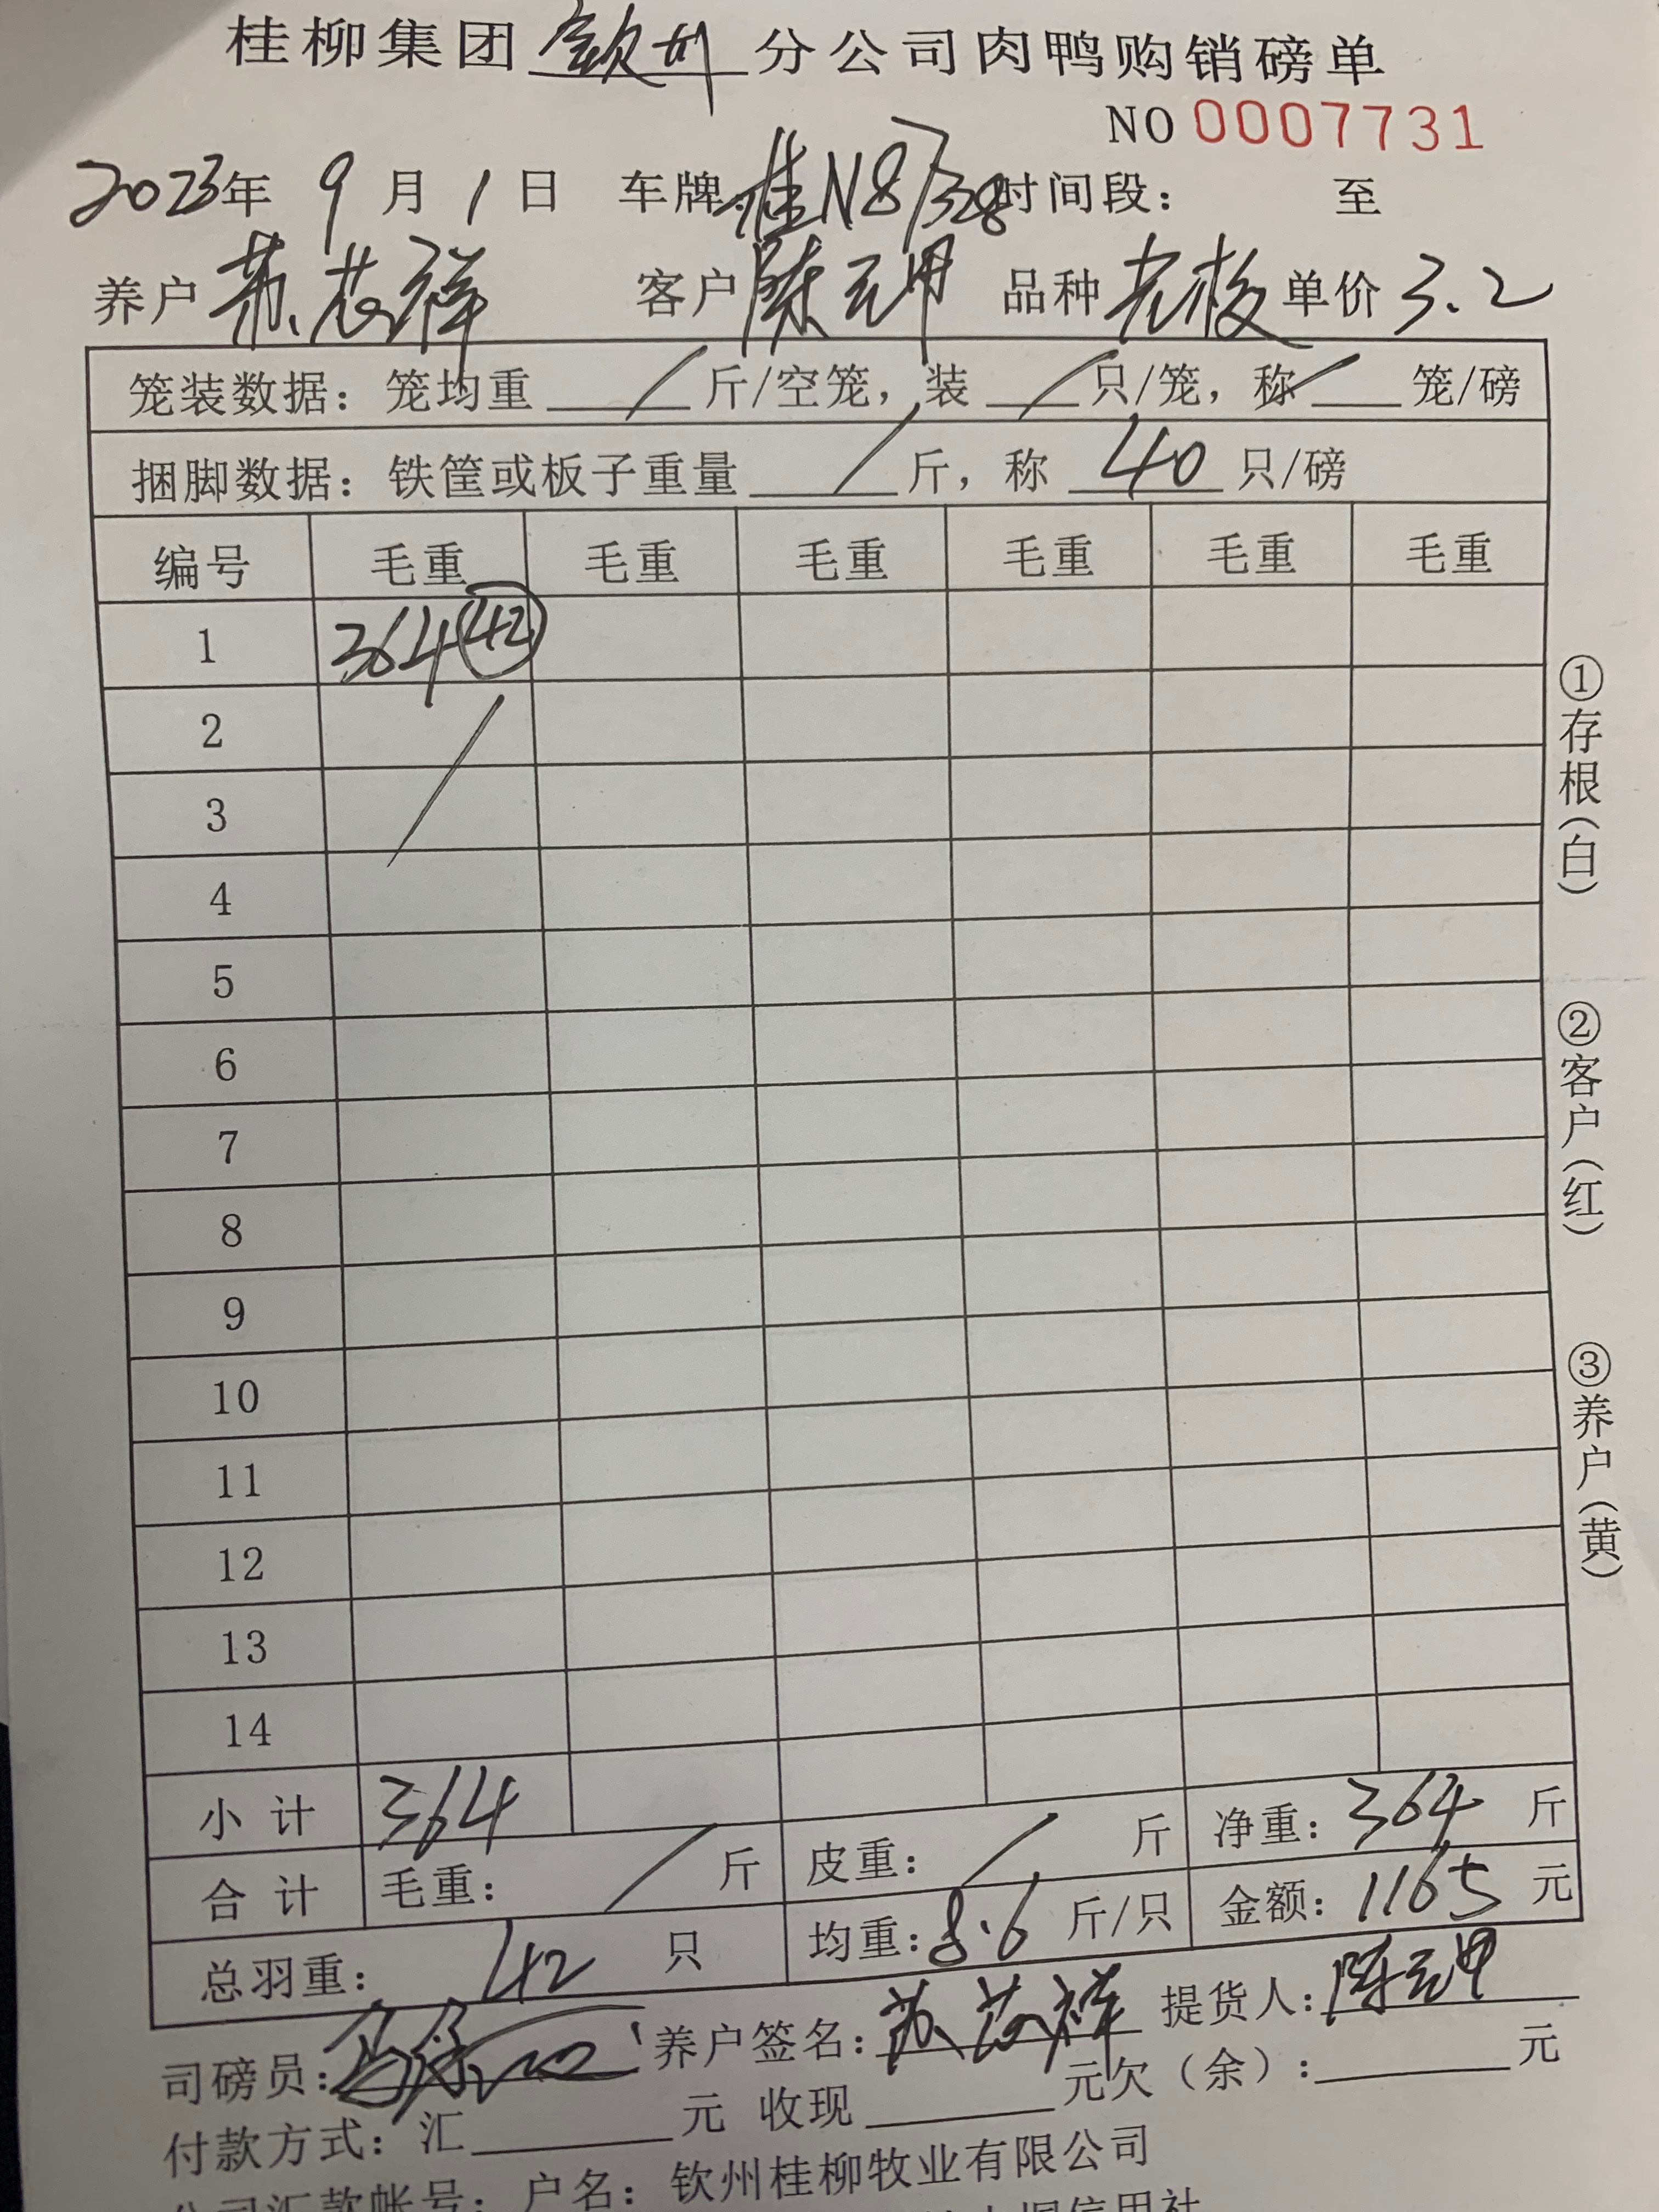 桂柳集团钦州分公司肉鸭购销磅单
NO 0007731
2023年 9 月 1 日 车牌:桂N87328 时间段: 至
养户 苏芯祥 客户 陈元甲 品种 单价 3.2
笼装数据:笼均重 / 斤/空笼,装 / 只/笼,称 / 笼/磅
捆脚数据:铁筐或板子重量 / 斤,称 40 只/磅
编号 毛重 毛重 毛重 毛重 毛重 毛重
1 364 42
2
3
4
5
6
7
8
9
10
11
12
13
14
小计 364 净重:364 斤
合计 毛重: / 斤 皮重: / 斤 金额:1165 元
总羽重: 42 只 均重:8.6 斤/只
司磅员: 养户签名:苏芯祥 提货人:陈元甲
付款方式:汇 元 收现 元欠(余): 元
公司汇款帐号:户名:钦州桂柳牧业有限公司
信用社
①存根(白)
②客户(红)
③养户(黄)